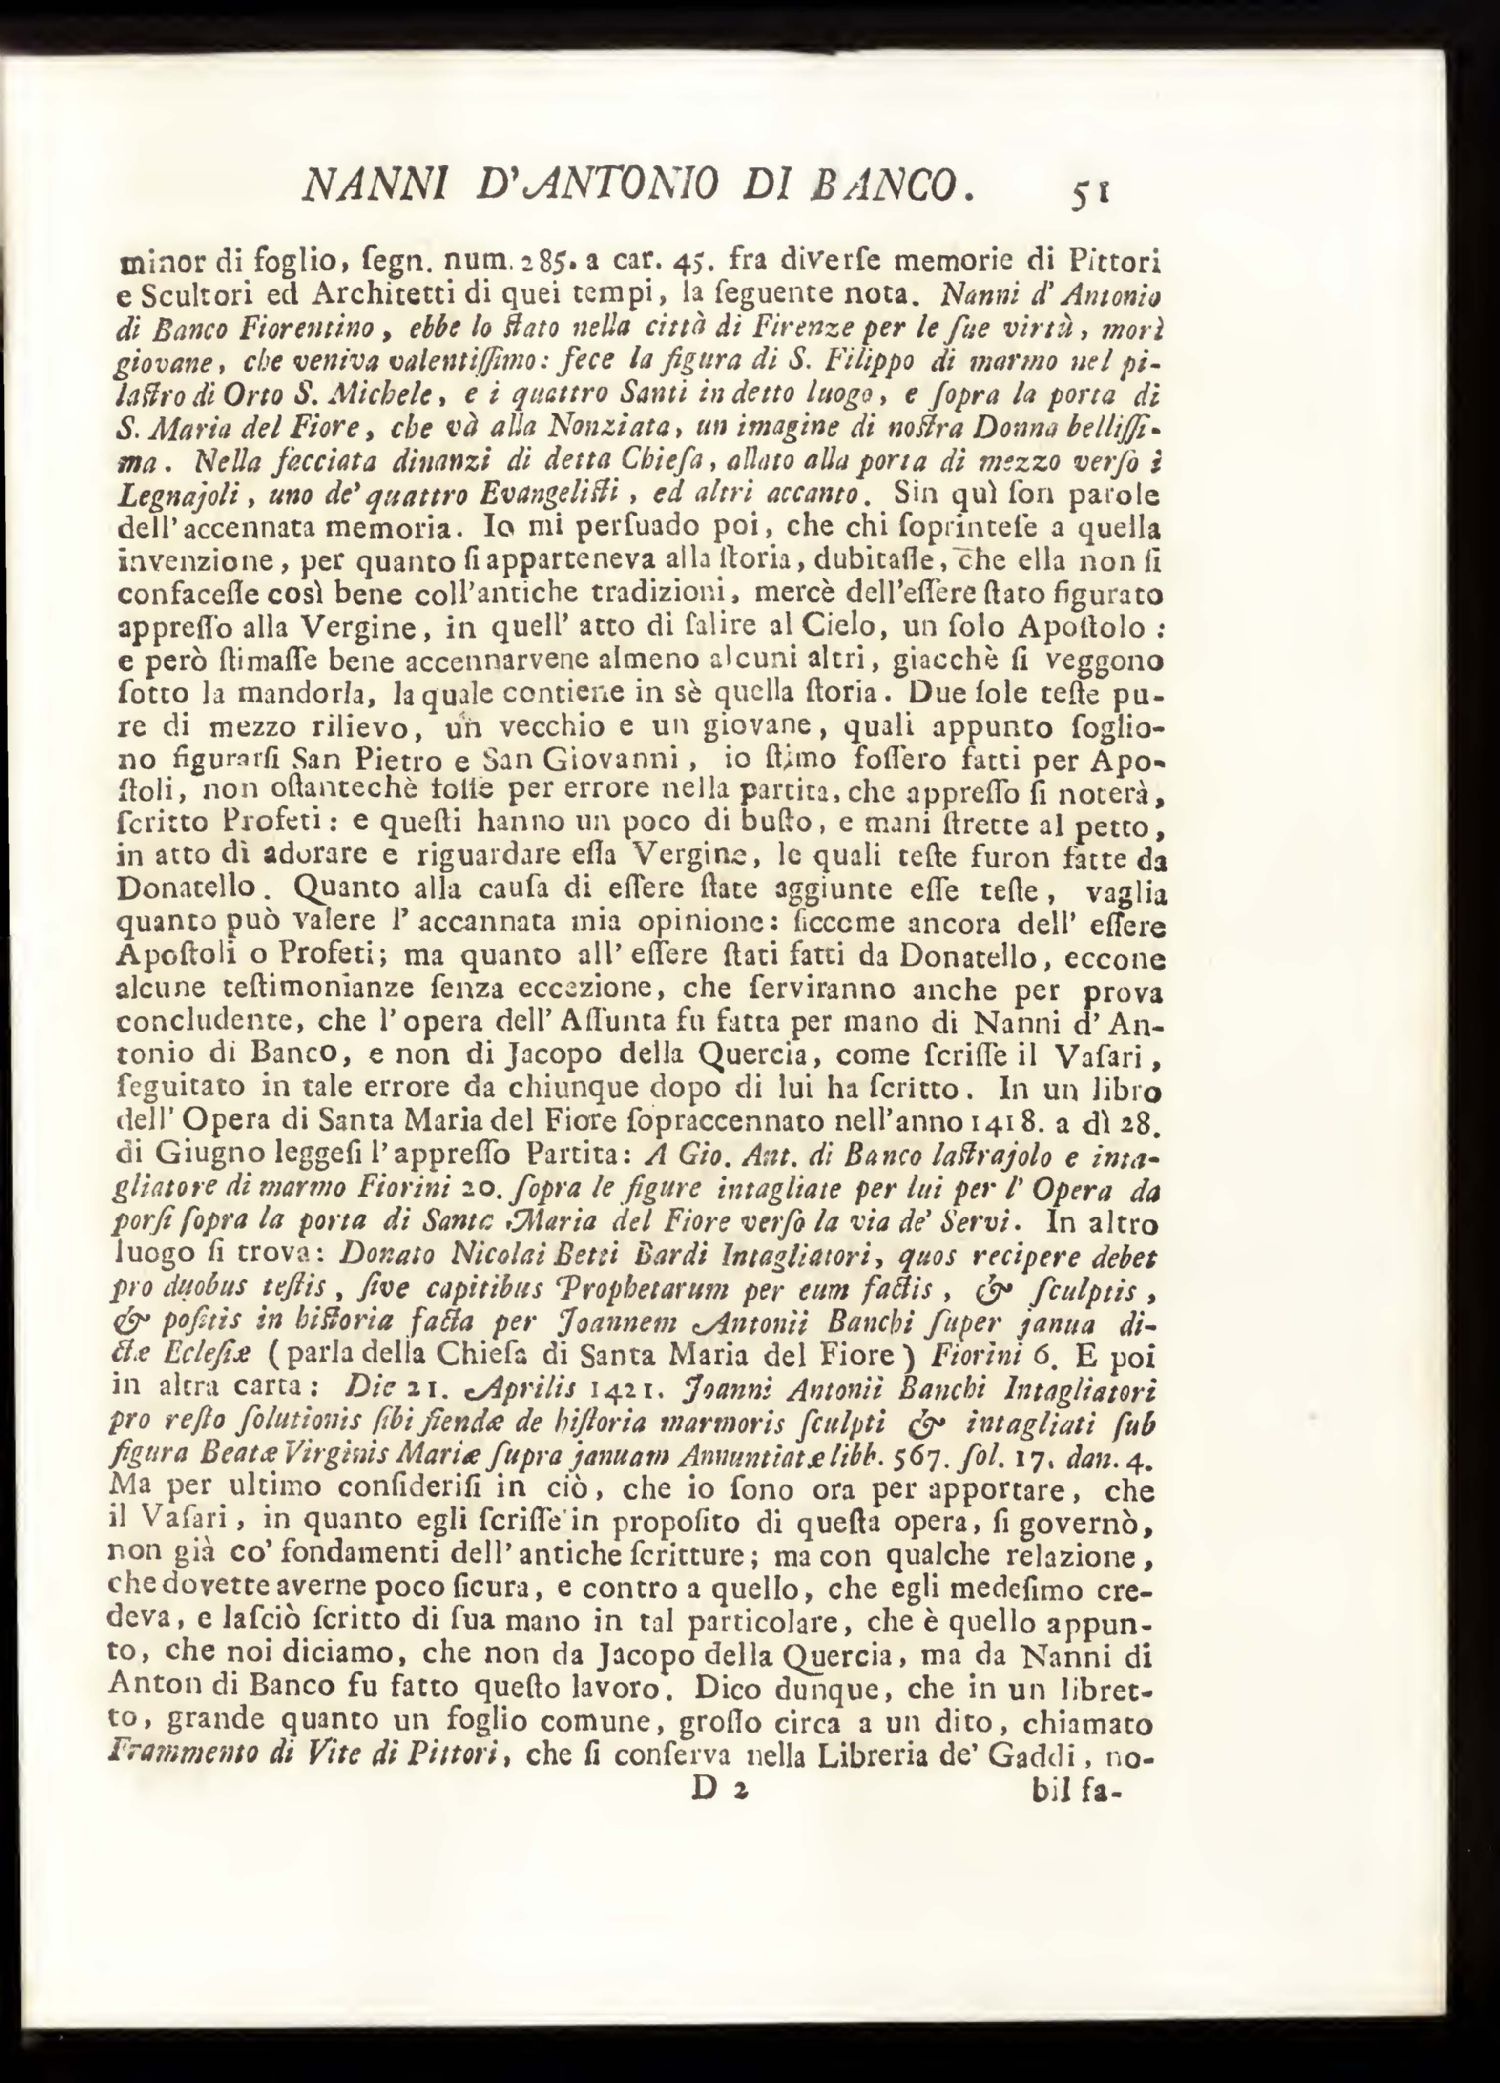 NANNI D'ANTONIO DI BANCO. 51
minor di foglio, ſegn. num. 285. a car. 45. fra diverſe memorie di Pittori
e Scultori ed Architetti di quei tempi, la ſeguente nota. Nanni d' Antonio
di Banco Fiorentino, ebbe lo ſtato nella città di Firenze per le ſue virtù, morì
giovane, che veniva valentiſſimo: fece la figura di S. Filippo di marmo nel pi-
laſtro di Orto S. Michele, e i quattro Santi in detto luogo, e ſopra la porta di
S. Maria del Fiore, che và alla Nonziata, un imagine di noſtra Donna belliſſi-
ma. Nella facciata dinanzi di detta Chieſa, allato alla porta di mezzo verſo i
Legnajoli, uno de' quattro Evangeliſti, ed altri accanto. Sin quì ſon parole
dell' accennata memoria. Io mi perſuado poi, che chi ſoprinteſe a quella
invenzione, per quanto ſi apparteneva alla ſtoria, dubitaſſe, che ella non ſi
confaceſſe così bene coll'antiche tradizioni, mercè dell'eſſere ſtato figurato
appreſſo alla Vergine, in quell' atto di ſalire al Cielo, un ſolo Apoſtolo:
e però ſtimaſſe bene accennarvene almeno alcuni altri, giacchè ſi veggono
ſotto la mandorla, la quale contiene in sè quella ſtoria. Due ſole teſte pu-
re di mezzo rilievo, un vecchio e un giovane, quali appunto ſoglio-
no figurarſi San Pietro e San Giovanni, io ſtimo foſſero fatti per Apo-
ſtoli, non oſtantechè foſſe per errore nella partita, che appreſſo ſi noterà,
ſcritto Profeti: e queſti hanno un poco di buſto, e mani ſtrette al petto,
in atto di adorare e riguardare eſſa Vergine, le quali teſte furon fatte da
Donatello. Quanto alla cauſa di eſſere ſtate aggiunte eſſe teſte, vaglia
quanto può valere l' accannata mia opinione: ſiccome ancora dell' eſſere
Apoſtoli o Profeti; ma quanto all' eſſere ſtati fatti da Donatello, eccone
alcune teſtimonianze ſenza eccezione, che ſerviranno anche per prova
concludente, che l' opera dell' Aſſunta fu fatta per mano di Nanni d' An-
tonio di Banco, e non di Jacopo della Quercia, come ſcriſſe il Vaſari,
ſeguitato in tale errore da chiunque dopo di lui ha ſcritto. In un libro
dell' Opera di Santa Maria del Fiore ſopraccennato nell'anno 1418. a dì 28.
di Giugno leggeſi l' appreſſo Partita: A Gio. Ant. di Banco laſtrajolo e inta-
gliatore di marmo Fiorini 20. ſopra le figure intagliate per lui per l' Opera da
porſi ſopra la porta di Santa Maria del Fiore verſo la via de' Servi. In altro
luogo ſi trova: Donato Nicolai Betti Bardi Intagliatori, quos recipere debet
pro duobus teſtis, ſive capitibus Prophetarum per eum factis, & ſculptis,
& poſitis in hiſtoria facta per Joannem Antonii Banchi ſuper janua di-
ctæ Ecleſiæ (parla della Chieſa di Santa Maria del Fiore) Fiorini 6. E poi
in altra carta: Die 21. Aprilis 1421. Joanni Antonii Banchi Intagliatori
pro reſto ſolutionis ſibi fiendæ de hiſtoria marmoris ſculpti & intagliati ſub
figura Beatæ Virginis Mariæ ſupra januam Annuntiatæ libb. 567. ſol. 17. dan. 4.
Ma per ultimo conſideriſi in ciò, che io ſono ora per apportare, che
il Vaſari, in quanto egli ſcriſſe in propoſito di queſta opera, ſi governò,
non già co' fondamenti dell' antiche ſcritture; ma con qualche relazione,
che dovette averne poco ſicura, e contro a quello, che egli medeſimo cre-
deva, e laſciò ſcritto di ſua mano in tal particolare, che è quello appun-
to, che noi diciamo, che non da Jacopo della Quercia, ma da Nanni di
Anton di Banco fu fatto queſto lavoro. Dico dunque, che in un libret-
to, grande quanto un foglio comune, groſſo circa a un dito, chiamato
Frammento di Vite di Pittori, che ſi conſerva nella Libreria de' Gaddi, no-
D 2 bil fa-